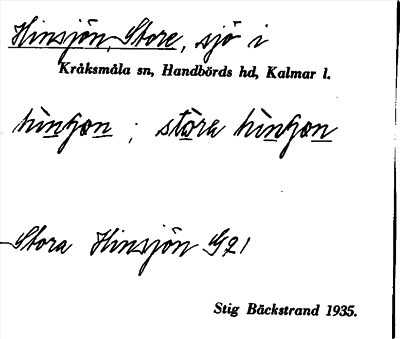 Hinsjön, Store, sjö i
Kråksmåla sn, Handbörds hd, Kalmar l.
Stora Hinsjön G21
Stig Bäckstrand 1935.